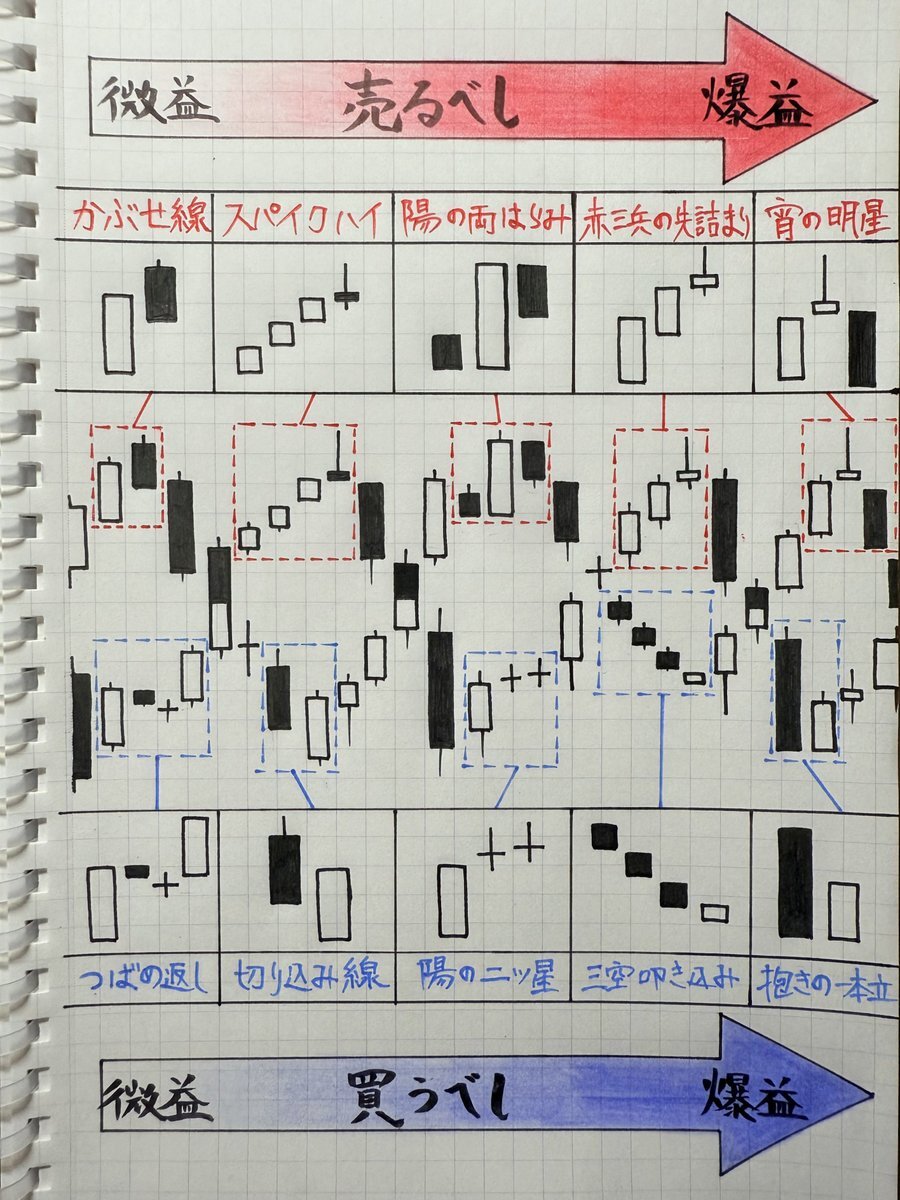 微益 売るべし 爆益
かぶせ線 スパイクハイ 陽の両はらみ 赤三兵の先詰まり 宵の明星
つばめ返し 切り込み線 陽の二ツ星 三空叩き込み 抱きの一本立
微益 買うべし 爆益